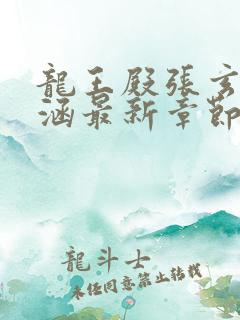 龍王殿張玄
涵最新章節
龍斗士
未經同意禁止轉載